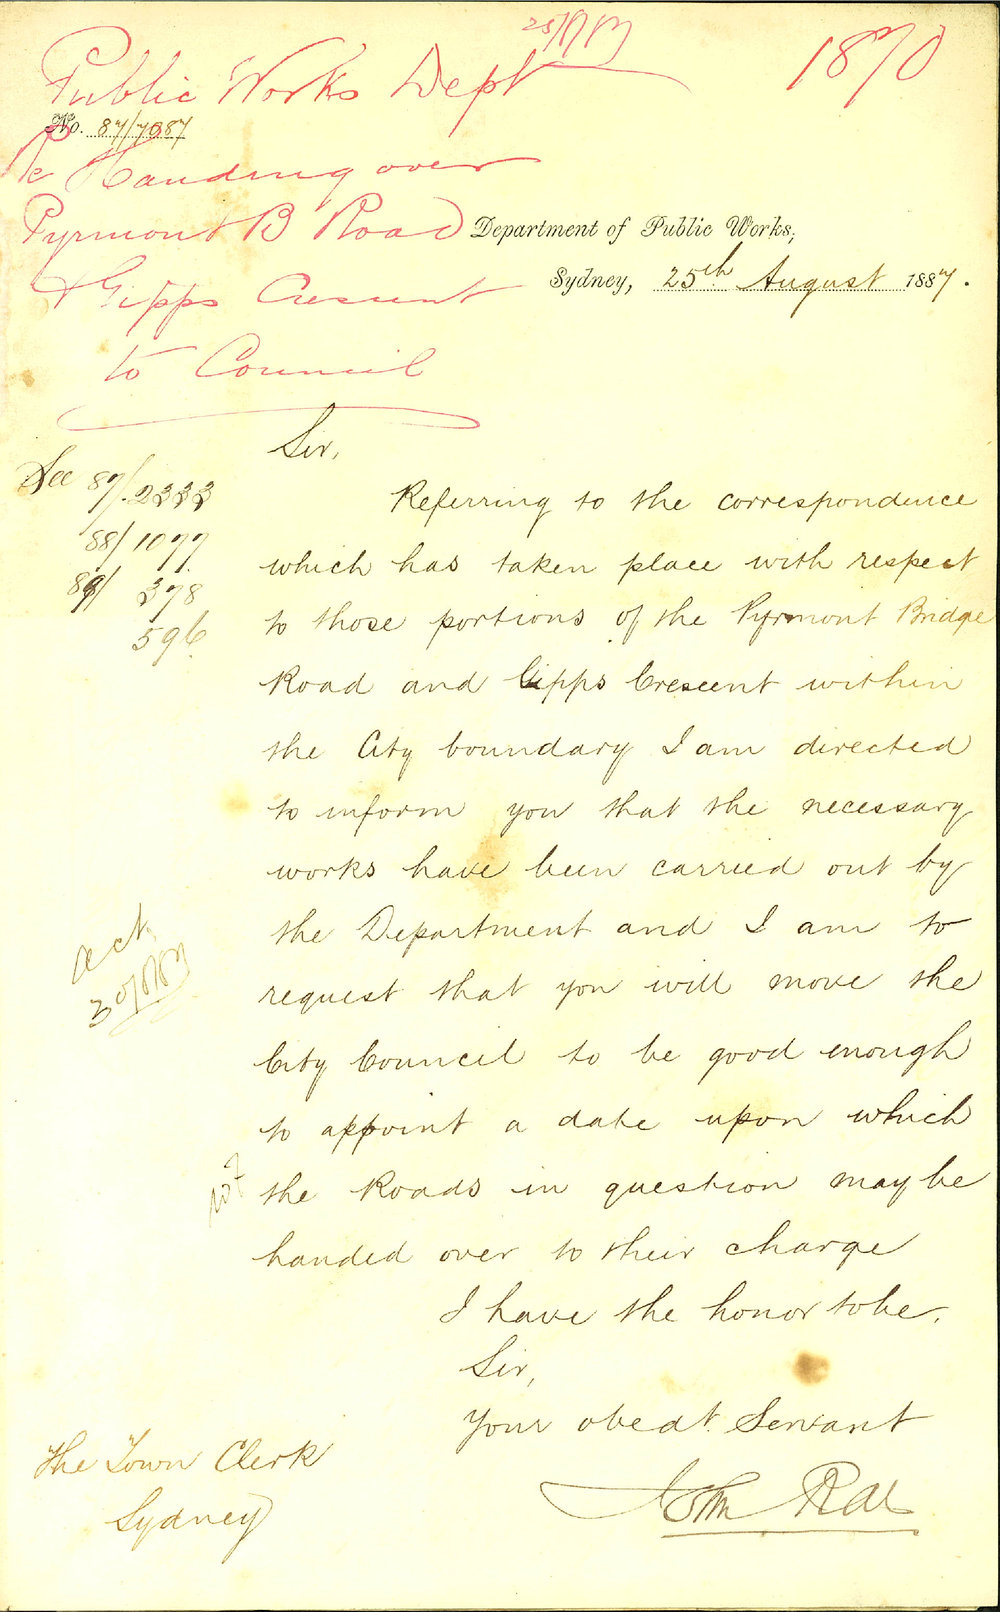 25/8/87
1870
Public Works Dept
No. 87/7087
Re Handing over
Pyrmont B Road
& Gipps Crescent
to Council
Department of Public Works,
Sydney, 25th August 1887.
Sir,
See 87/2333
88/1077
89/378
596
Referring to the correspondence
which has taken place with respect
to those portions of the Pyrmont Bridge
Road and Gipps Crescent within
the City boundary I am directed
to inform you that the necessary
works have been carried out by
the Department and I am to
request that you will move the
City Council to be good enough
to appoint a date upon which
the Roads in question may be
handed over to their charge
ack.
30/8/87
I have the honor to be.
Sir,
Your obedt. Servant
John Rae
The Town Clerk
Sydney